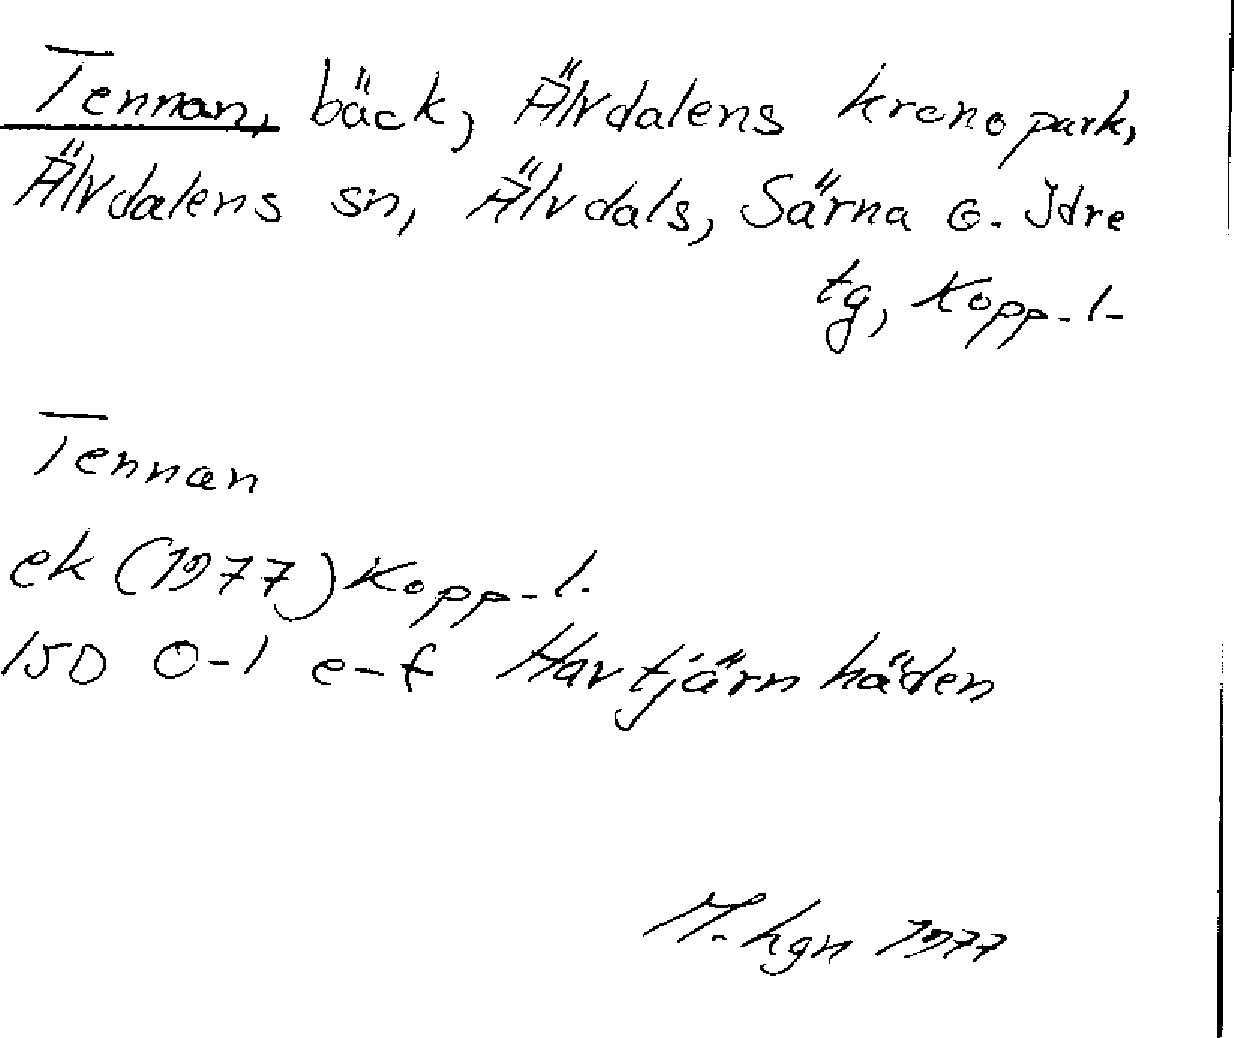 Tennan, bäck, Älvdalens kronopark,
Älvdalens sn, Älvdals, Särna o. Idre
tg, Kopp. l.
Tennan
ek (1977) Kopp. l.
15D 0-1 e-f Havtjärnhäden
M. hgn 1977